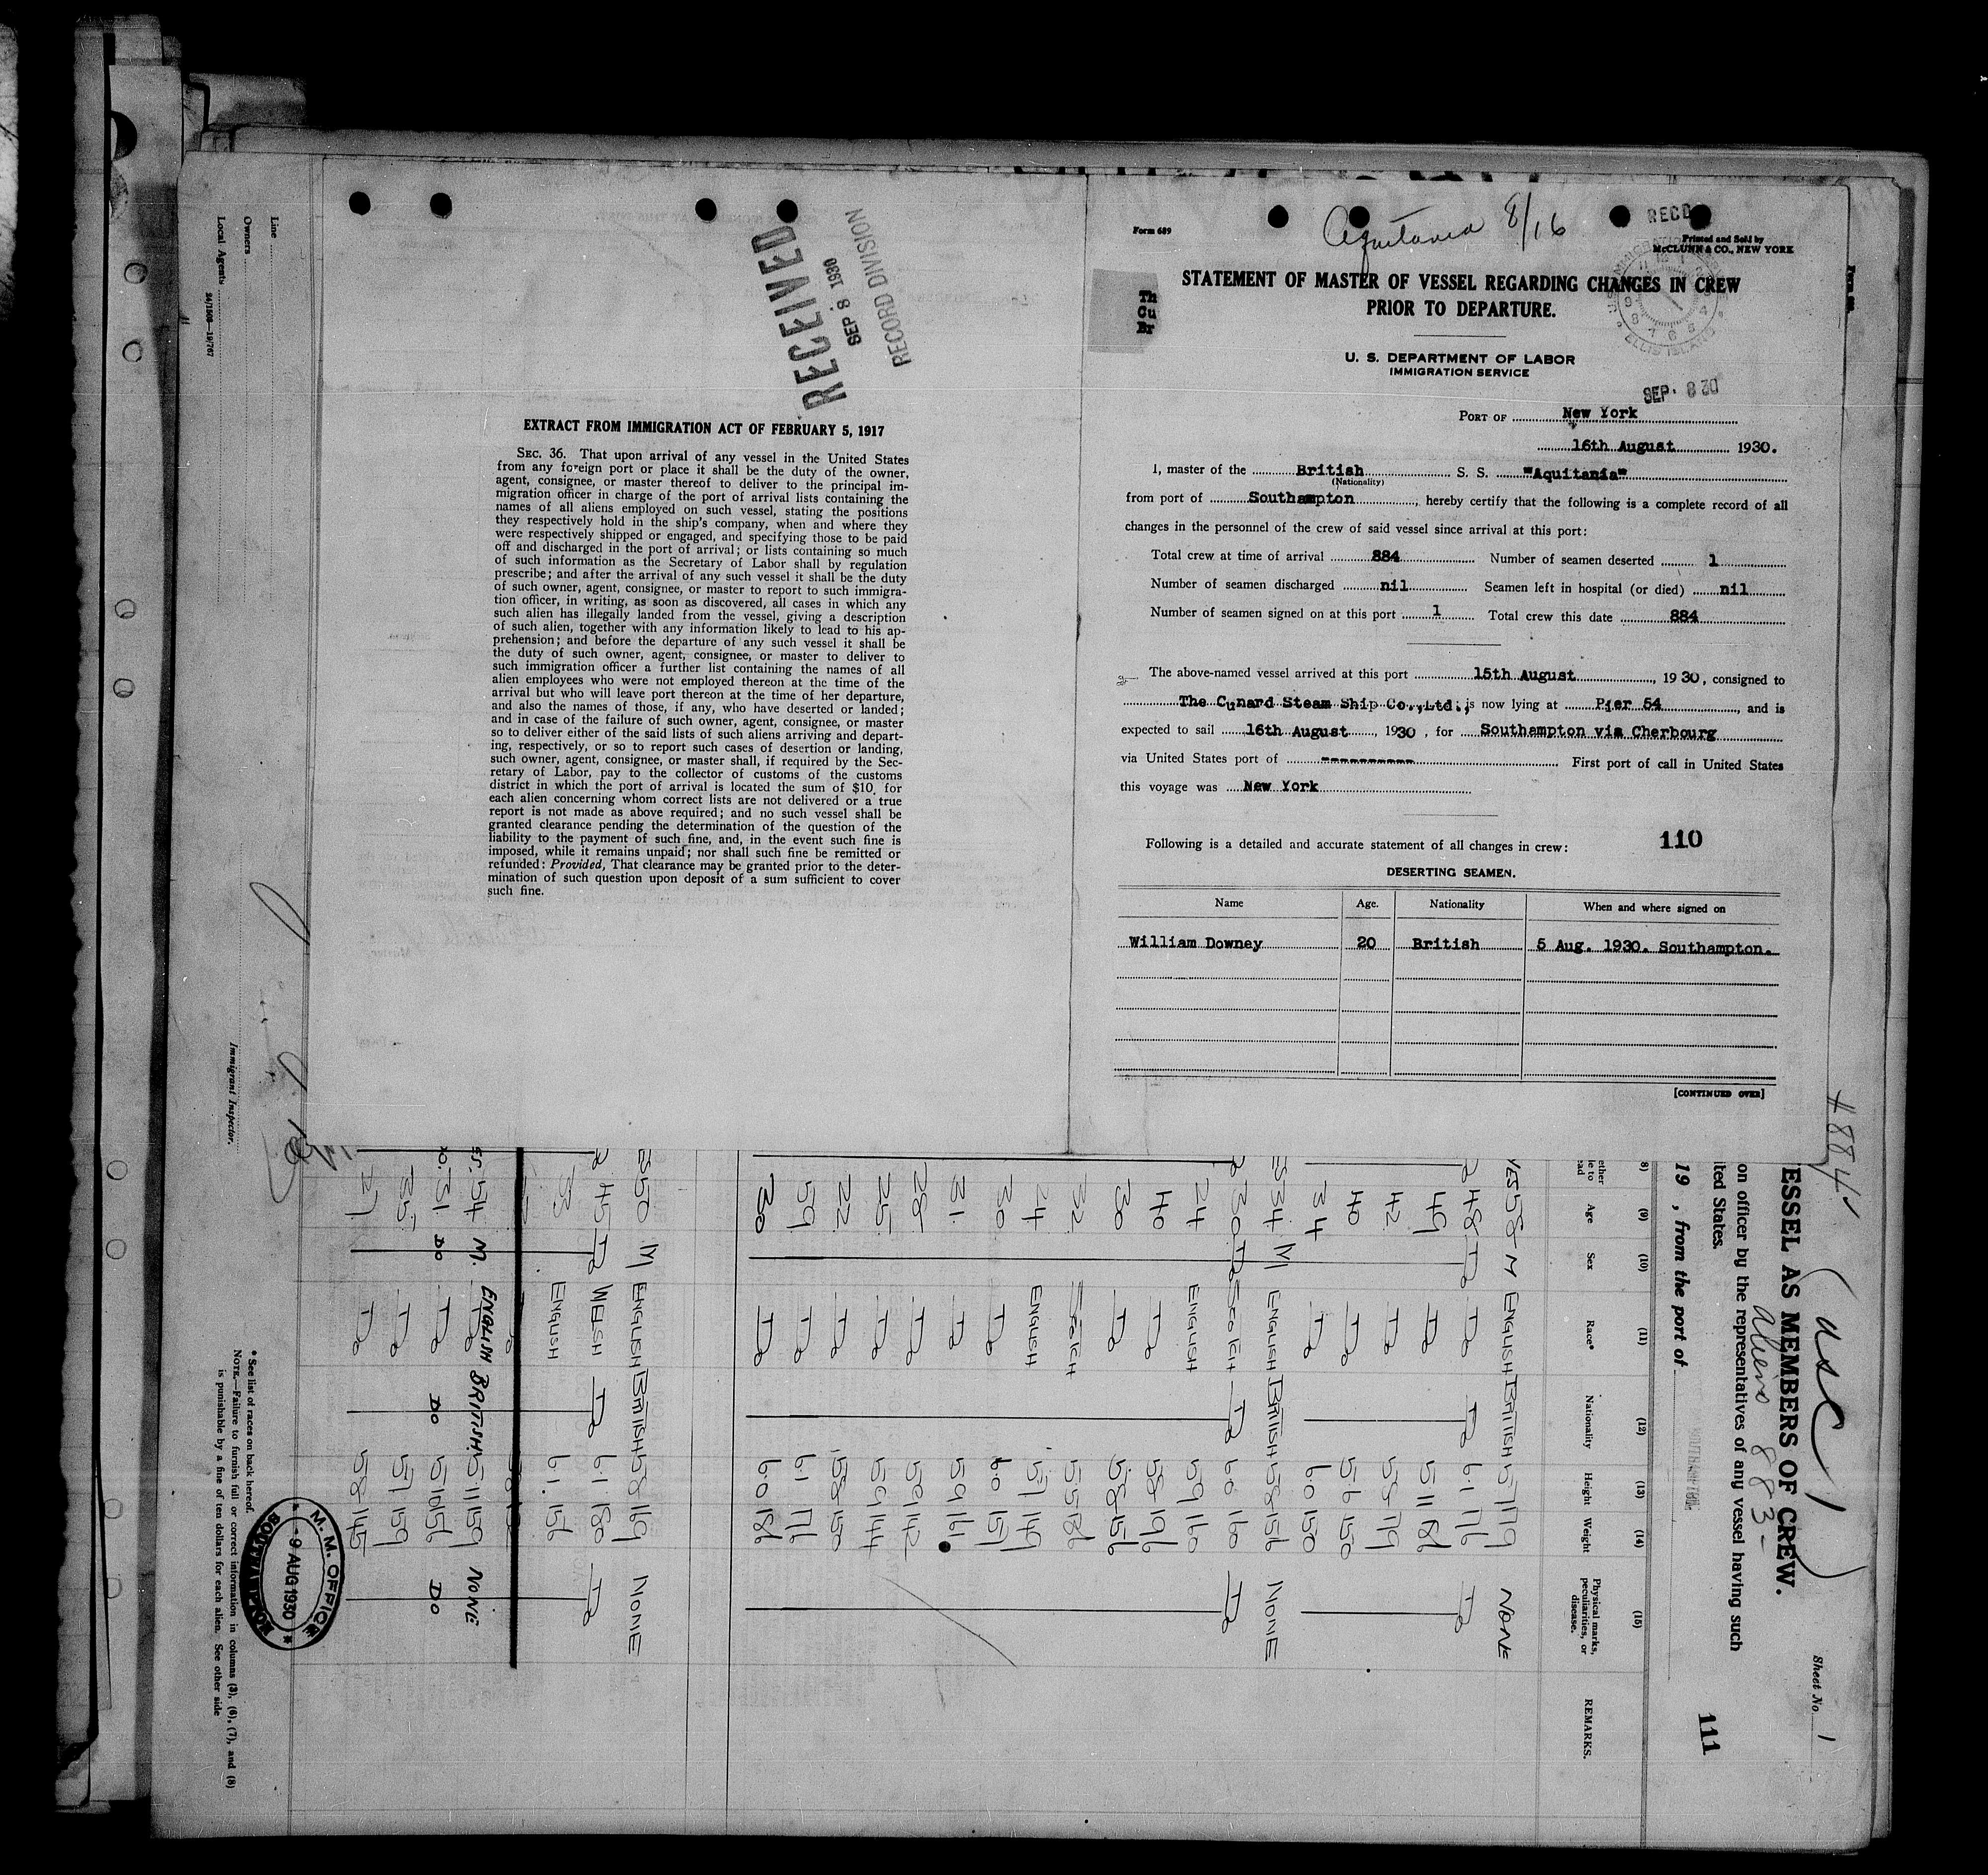 Line
Owners
Local Agents
24/1508—19/767
Immigrant Inspector.
RECEIVED
SEP 8 1930
RECORD DIVISION
EXTRACT FROM IMMIGRATION ACT OF FEBRUARY 5, 1917
SEC. 36. That upon arrival of any vessel in the United States
from any foreign port or place it shall be the duty of the owner,
agent, consignee, or master thereof to deliver to the principal im-
migration officer in charge of the port of arrival lists containing the
names of all aliens employed on such vessel, stating the positions
they respectively hold in the ship's company, when and where they
were respectively shipped or engaged, and specifying those to be paid
off and discharged in the port of arrival; or lists containing so much
of such information as the Secretary of Labor shall by regulation
prescribe; and after the arrival of any such vessel it shall be the duty
of such owner, agent, consignee, or master to report to such immigra-
tion officer, in writing, as soon as discovered, all cases in which any
such alien has illegally landed from the vessel, giving a description
of such alien, together with any information likely to lead to his ap-
prehension; and before the departure of any such vessel it shall be
the duty of such owner, agent, consignee, or master to deliver to
such immigration officer a further list containing the names of all
alien employees who were not employed thereon at the time of the
arrival but who will leave port thereon at the time of her departure,
and also the names of those, if any, who have deserted or landed;
and in case of the failure of such owner, agent, consignee, or master
so to deliver either of the said lists of such aliens arriving and depart-
ing, respectively, or so to report such cases of desertion or landing,
such owner, agent, consignee, or master shall, if required by the Sec-
retary of Labor, pay to the collector of customs of the customs
district in which the port of arrival is located the sum of $10 for
each alien concerning whom correct lists are not delivered or a true
report is not made as above required; and no such vessel shall be
granted clearance pending the determination of the question of the
liability to the payment of such fine, and, in the event such fine is
imposed, while it remains unpaid; nor shall such fine be remitted or
refunded: Provided, That clearance may be granted prior to the deter-
mination of such question upon deposit of a sum sufficient to cover
such fine.
Form 689
Aquitania 8/16
RECD
Printed and Sold by
McCLUNN & CO., NEW YORK
Th
Cu
Br
STATEMENT OF MASTER OF VESSEL REGARDING CHANGES IN CREW
PRIOR TO DEPARTURE.
ELLIS ISLAND
U. S. DEPARTMENT OF LABOR
IMMIGRATION SERVICE
SEP. 8 30
PORT OF New York
16th August 1930.
I, master of the British S. S. "Aquitania"
(Nationality)
from port of Southampton, hereby certify that the following is a complete record of all
changes in the personnel of the crew of said vessel since arrival at this port:
Total crew at time of arrival 884 Number of seamen deserted 1
Number of seamen discharged nil Seamen left in hospital (or died) nil
Number of seamen signed on at this port 1 Total crew this date 884
The above-named vessel arrived at this port 15th August, 1930, consigned to
The Cunard Steam Ship Co.,Ltd., is now lying at Pier 54, and is
expected to sail 16th August, 1930, for Southampton via Cherbourg
via United States port of ---------- First port of call in United States
this voyage was New York
110
Following is a detailed and accurate statement of all changes in crew:
DESERTING SEAMEN.
Name Age. Nationality When and where signed on
William Downey 20 British 5 Aug. 1930. Southampton.
[CONTINUED OVER]
#884
(USC 1)
Aliens 883-
Sheet No. 1
ESSEL AS MEMBERS OF CREW.
on officer by the representatives of any vessel having such
ted States.
111
19 , from the port of
(9) (10) (11) (12) (13) (14) (15)
Age Sex Race* Nationality Height Weight Physical marks, peculiarities, or disease. REMARKS.
YES 58 M ENGLISH BRITISH 57 179 NONE
48 Do Do Do 6.1 176 Do
49 Do 511 181
42 Do 58 179
40 Do 56 150
34 Do 60 150
34 M ENGLISH BRITISH 58 156 NONE
30 Do SCOTCH Do 60 160 Do
24 ENGLISH 59 160
40 Do 58 196
30 Do 58 156
32 SCOTCH 55 186
24 ENGLISH 57 149
30 Do 60 157
31 Do 59 161
28 Do 59 142
25 Do 59 144
22 Do 58 150
59 Do 61 176
30 Do 60 186
50 M ENGLISH BRITISH 58 169 NONE
45 Do WELSH Do 6.1 180 Do
33 ENGLISH 61 156
54 M. ENGLISH BRITISH 511 159 NONE
31 DO Do DO 510 156 DO
35 Do 57 159
27 Do 58 145
* See list of races on back hereof.
NOTE.—Failure to furnish full or correct information in columns (3), (6), (7), and (8)
is punishable by a fine of ten dollars for each alien. See other side
M. M. OFFICE
9 AUG 1930
SOUTHAMPTON